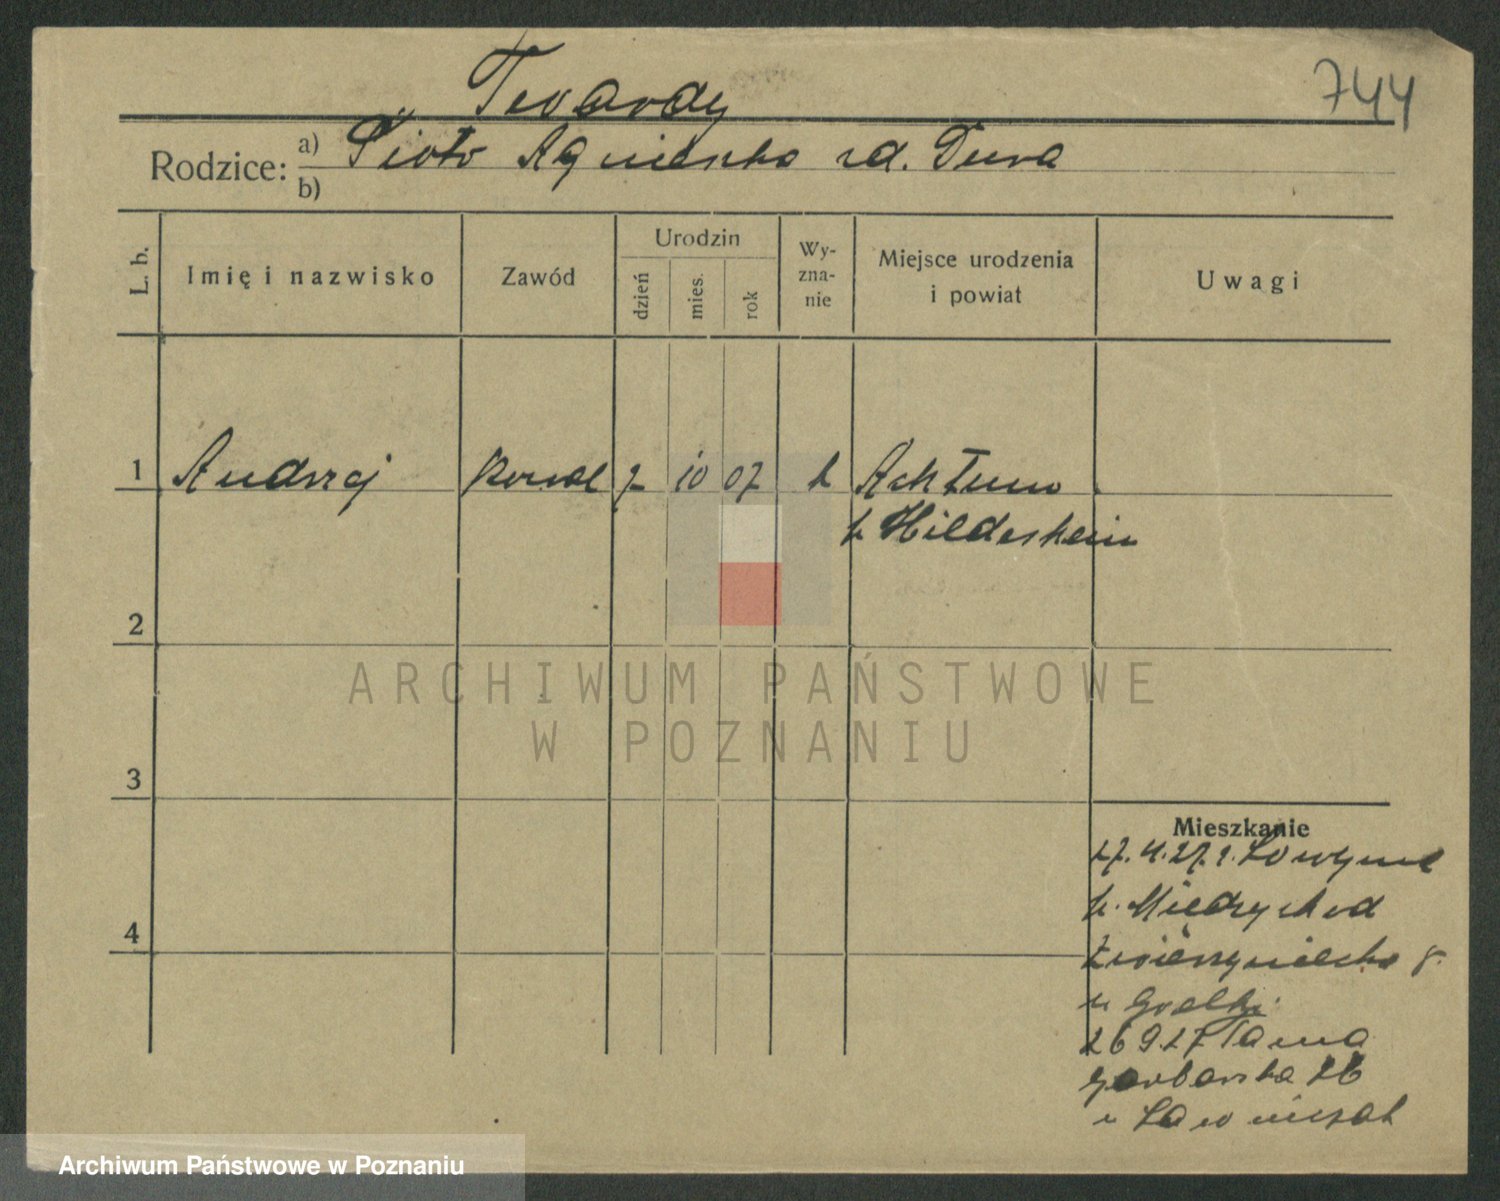 Twardy
744
Rodzice: a) Piotr Agnieszka zd. Dura
b)
L. b.
Imię i nazwisko
Zawód
Urodzin
dzień
mies.
rok
Wy-
zna-
nie
Miejsce urodzenia
i powiat
Uwagi
1 Andrzej Kowal 7 10 07 k Achtum
p. Hildesheim
2
3
4
ARCHIWUM PAŃSTWOWE
W POZNANIU
Mieszkanie
27.4.27. z. Łowynie
p. Międzychód
Zwierzyniecka 8.
26 9 27 Tama
Garbarska 26
Archiwum Państwowe w Poznaniu